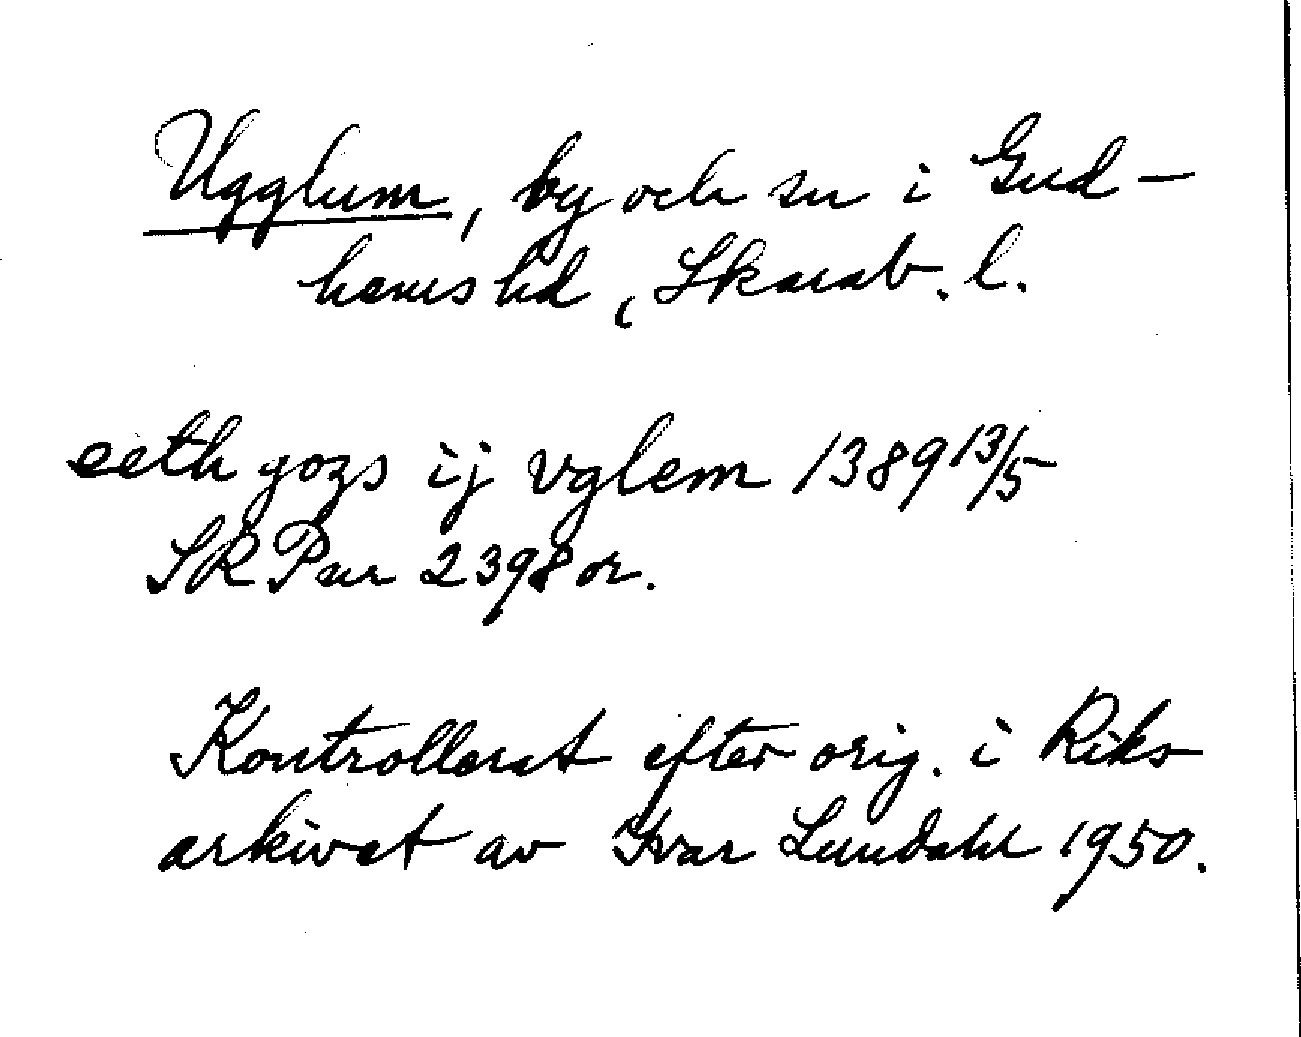 Ugglum, by och sn i Gud-
hems hd, Skarab. l.
eeth gozs ij vglem 1389 13/5
SRPnr 2398 or.
Kontrollerat efter orig. i Riks
arkivet av Ivar Lundahl 1950.